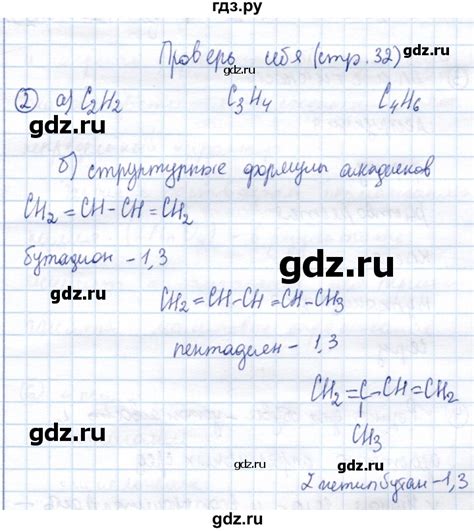 гдз.ру
Проверь себя (стр. 32)
② а) C2H2 C3H4 C4H6
gdz.ru gdz.ru
б) структурные формулы алкадиенов
gdz.ru gdz.ru
CH2 = CH - CH = CH2
бутадион - 1,3
gdz.ru gdz.ru
CH2 = CH - CH = CH - CH3
пентадиен - 1,3
gdz.ru
CH2 = C - CH = CH2
CH3
gdz.ru gdz.ru
2 метилбутан - 1,3
gdz.ru gdz.ru